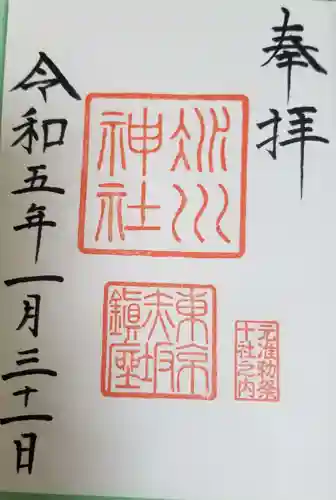 奉拝
氷川
神社
東京
赤坂
鎮座
元准勅祭
十社之内
令和五年一月三十一日